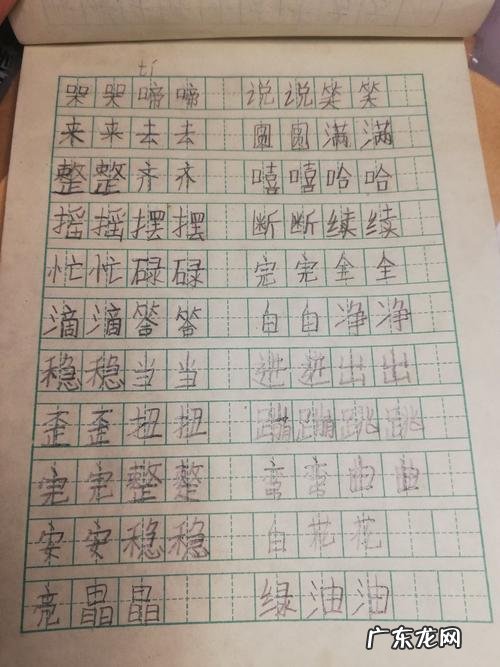 tí
哭哭啼啼 说说笑笑
来来去去 圆圆满满
整整齐齐 嘻嘻哈哈
摇摇摆摆 断断续续
忙忙碌碌 完完全全
滴滴答答 白白净净
稳稳当当 进进出出
歪歪扭扭 蹦蹦跳跳
完完整整 弯弯曲曲
安安稳稳 白花花
亮晶晶 绿油油
广东龙网